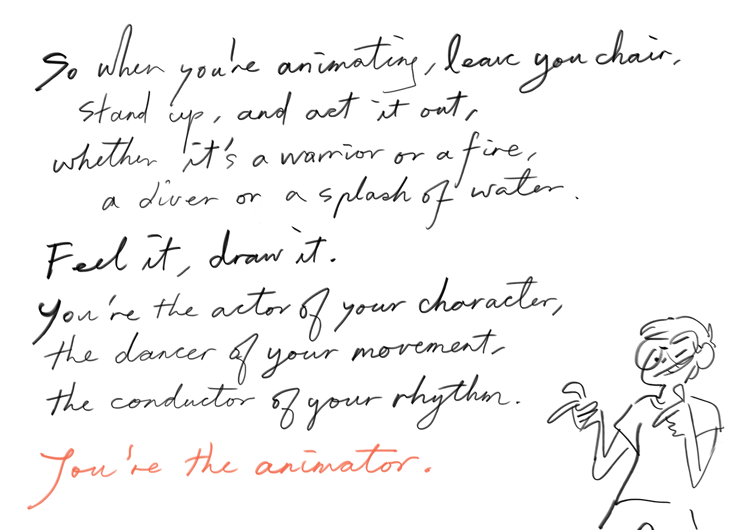 So when you're animating, leave you chair,
stand up, and act it out,
whether it's a warrior or a fire,
a diver or a splash of water.
Feel it, draw it.
You're the actor of your character,
the dancer of your movement,
the conductor of your rhythm.
You're the animator.